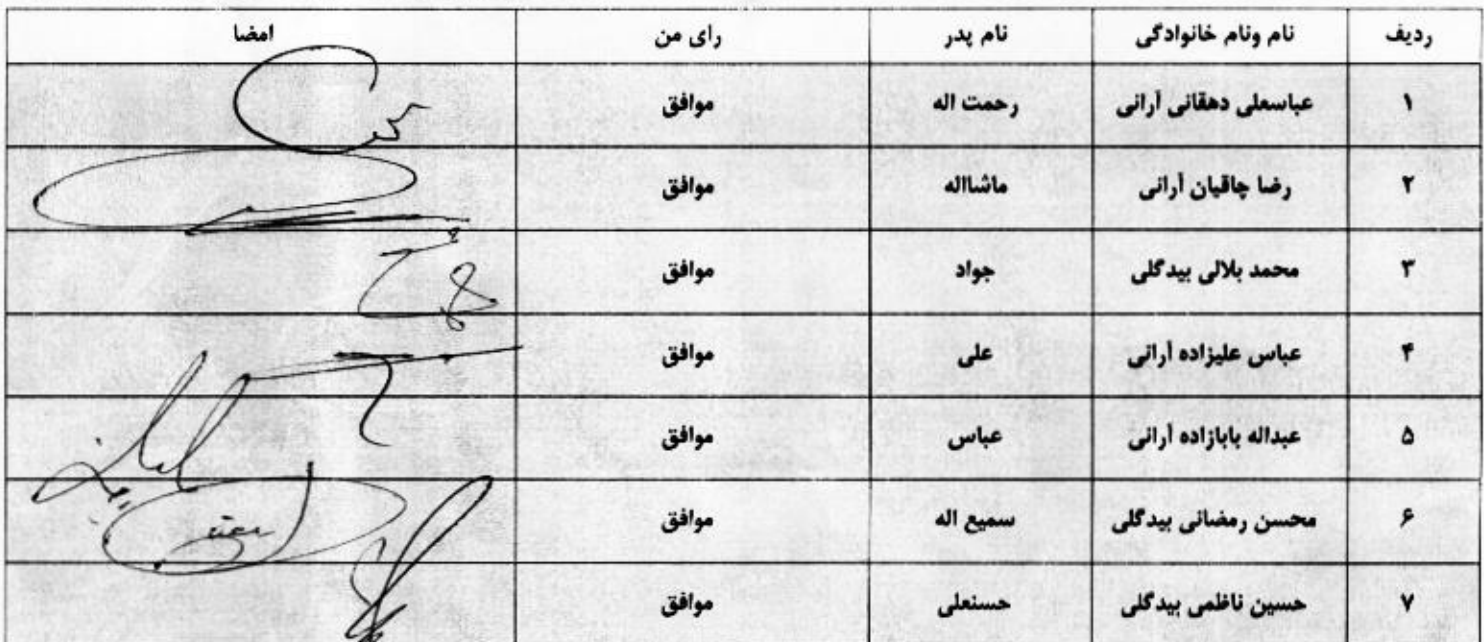 ردیف نام ونام خانوادگی نام پدر رای من امضا
۱ عباسعلی دهقانی آرانی رحمت اله موافق
۲ رضا چاقیان آرانی ماشااله موافق
۳ محمد بلالی بیدگلی جواد موافق
۴ عباس علیزاده آرانی علی موافق
۵ عبداله بابازاده آرانی عباس موافق
۶ محسن رمضانی بیدگلی سمیع اله موافق
۷ حسین ناظمی بیدگلی حسنعلی موافق